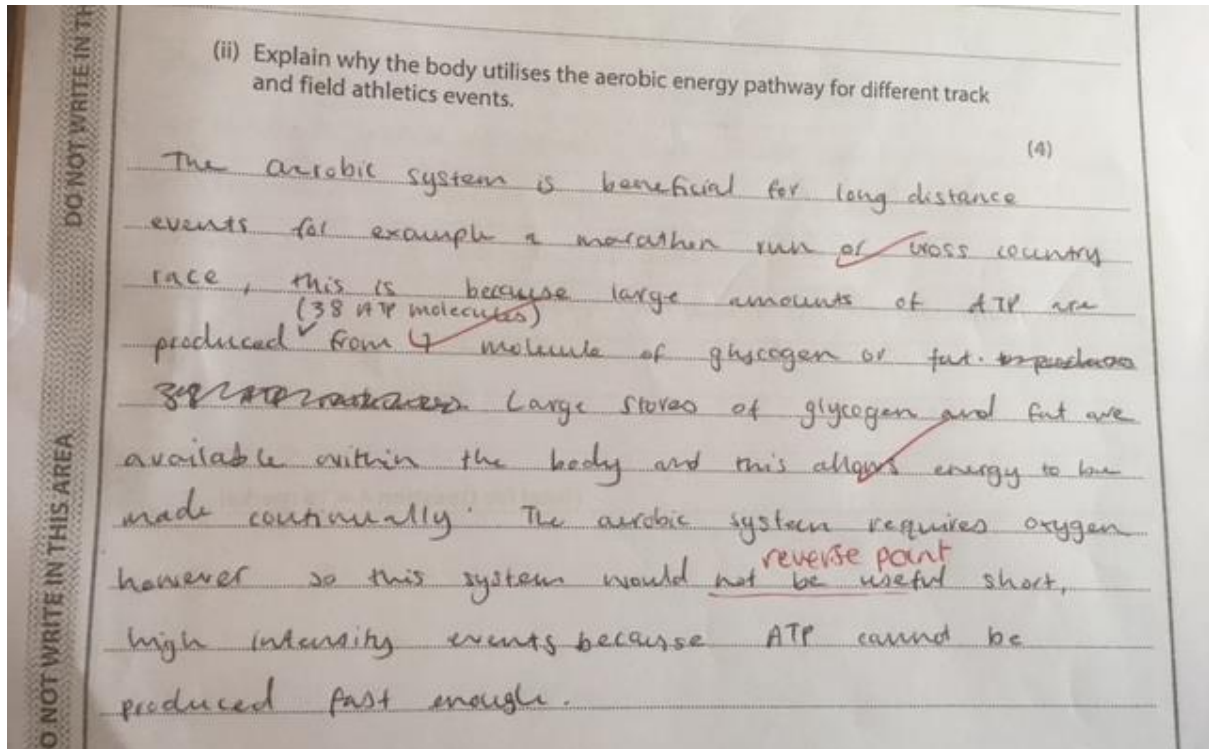 DO NOT WRITE IN TH
DO NOT WRITE IN THIS AREA
(ii) Explain why the body utilises the aerobic energy pathway for different track
and field athletics events.
(4)
The aerobic system is beneficial for long distance
events for example a marathon run or cross country
race, this is because large amounts of ATP are
(38 ATP molecules)
produced from 1 molecule of glycogen or fat.
Large stores of glycogen and fat are
available within the body and this allows energy to be
made continually. The aerobic system requires oxygen
reverse point
however so this system would not be useful short,
high intensity events because ATP cannot be
produced fast enough.